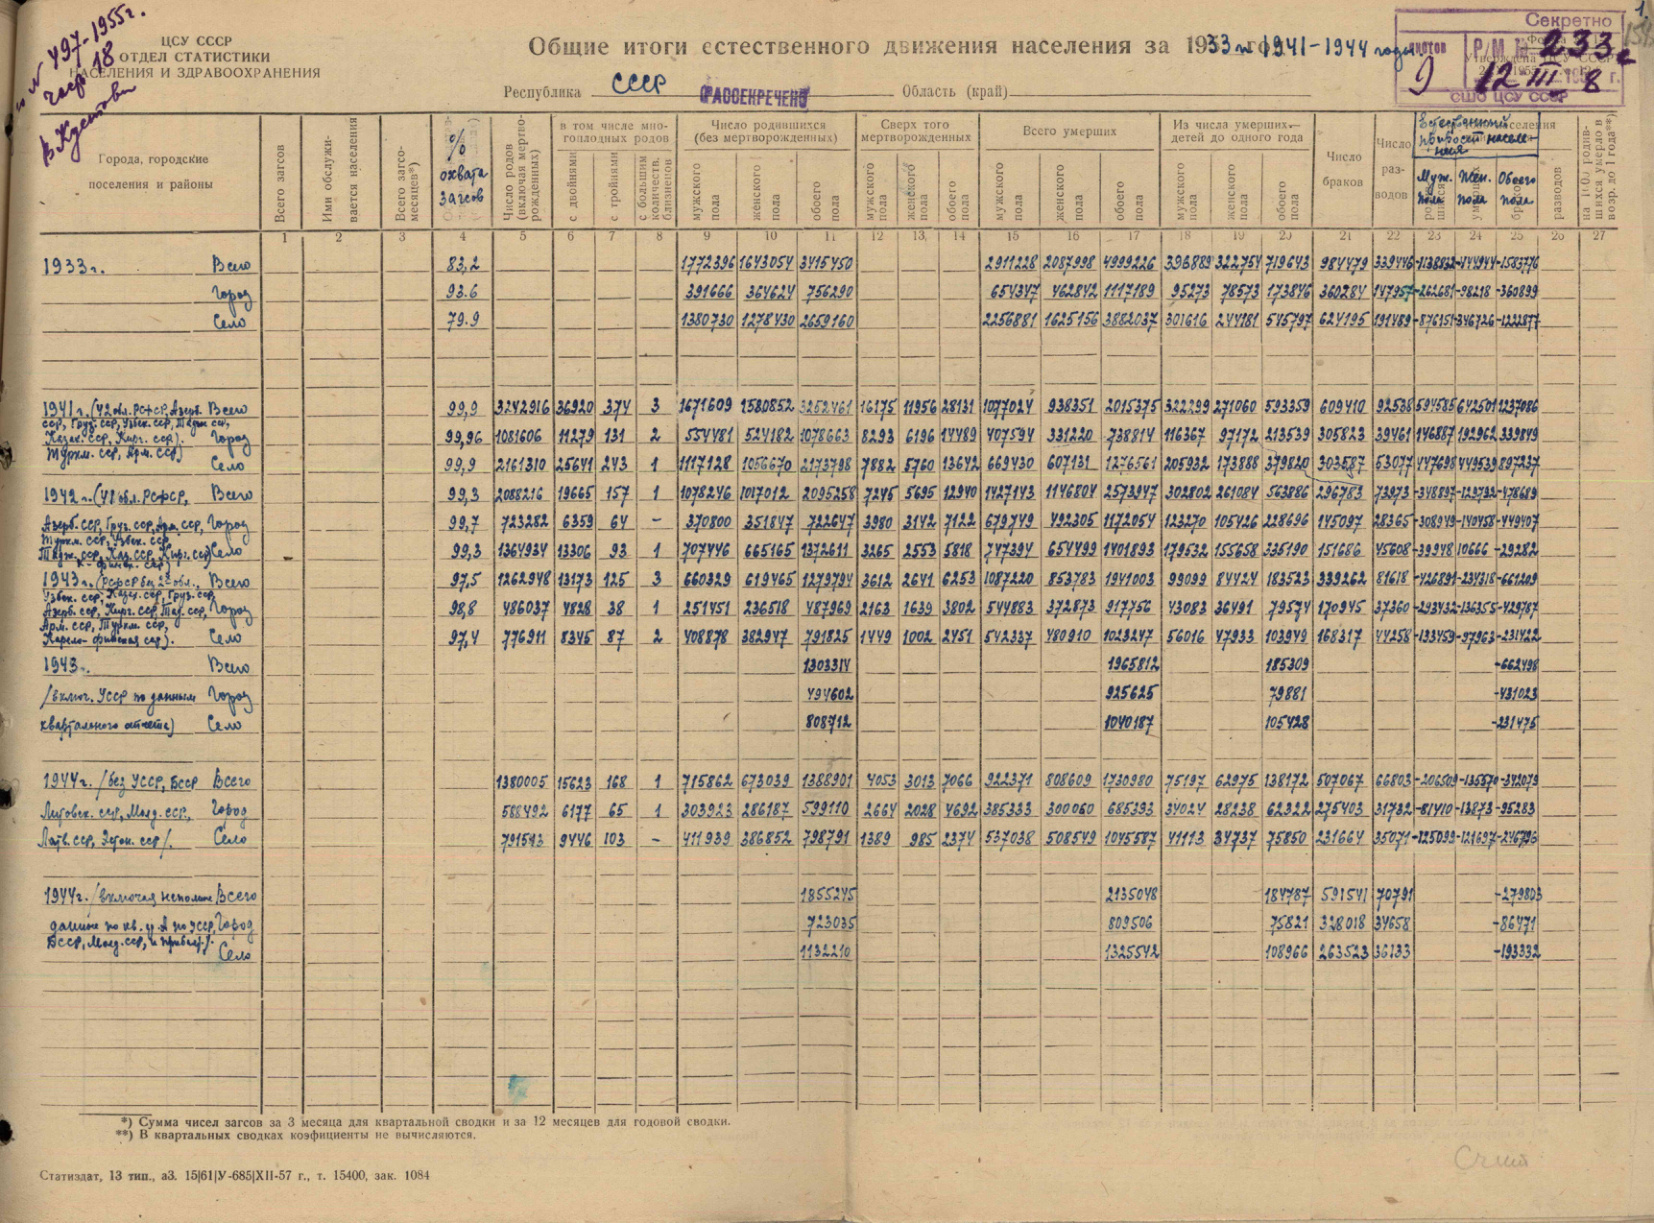 № 497-1955г.
ЦСУ СССР
ОТДЕЛ СТАТИСТИКИ
НАСЕЛЕНИЯ И ЗДРАВООХРАНЕНИЯ
Общие итоги естественного движения населения за 1933 и 1941-1944 годы
Секретно
Р/М № 233с
9 12 III 1958 г.
СШО ЦСУ СССР
Республика СССР РАССЕКРЕЧЕНО Область (край)
Города, городские поселения и районы
Всего загсов
Ими обслуживается населения
Всего загсо-месяцев*)
% охвата загсов
Число родов (включая мертворожденных)
в том числе многоплодных родов
с двойнями
с тройнями
с большим количеств. близнецов
Число родившихся (без мертворожденных)
мужского пола
женского пола
обоего пола
Сверх того мертворожденных
мужского пола
женского пола
обоего пола
Всего умерших
мужского пола
женского пола
обоего пола
Из числа умерших— детей до одного года
мужского пола
женского пола
обоего пола
Число браков
Число разводов
Естественный прирост населения
Муж. пола
Жен. пола
Обоего пола
разводов
1 2 3 4 5 6 7 8 9 10 11 12 13 14 15 16 17 18 19 20 21 22 23 24 25 26 27
1933г. Всего 83,2 1772396 1643054 3415450 2911228 2087998 4999226 396889 322754 719643 984479 339446 -1138832 -444944 -1583776
Город 93.6 391666 364624 756290 654347 462842 1117189 95273 78573 173846 360284 147957 -262681 -98218 -360899
Село 79.9 1380730 1278430 2659160 2256881 1625156 3882037 301616 244181 545797 624195 191489 -876151 -346726 -1222877
1941г. (42 обл. РСФСР, Азерб. Всего 99,9 3242916 36920 374 3 1671609 1580852 3252461 16175 11956 28131 1077024 938351 2015375 322299 271060 593359 609410 92538 594585 642501 1237086
ССР, Груз. ССР, Узбек. ССР, Тадж. ССР,
Казах. ССР, Кирг. ССР). Город 99,96 1081606 11279 131 2 554481 524182 1078663 8293 6196 14489 407594 331220 738814 116367 97172 213539 305823 39461 146887 192962 339849
Туркм. ССР, Арм. ССР)
Село 99,9 2161310 25641 243 1 1117128 1056670 2173798 7882 5760 13642 669430 607131 1276561 205932 173888 379820 303587 53077 447698 449539 897237
1942г. (41 обл. РСФСР, Всего 99,3 2088216 19665 157 1 1078246 1017012 2095258 7245 5695 12940 1427143 1146804 2573947 302802 261084 563886 296783 73973 -348897 -129792 -478689
Азерб. ССР, Груз. ССР, Арм. ССР, Город 99,7 723282 6359 64 - 370800 351847 722647 3980 3142 7122 679749 492305 1172054 123270 105426 228696 145097 28365 -308949 -140458 -449407
Туркм. ССР, Узбек. ССР,
Тадж. ССР, Каз. ССР, Кирг. ССР, Село 99,3 1364934 13306 93 1 707446 665165 1372611 3265 2553 5818 747394 654499 1401893 179532 155658 335190 151686 45608 -39948 10666 -29282
К-финск. ССР)
1943г. (РСФСР без 2х обл., Всего 97,5 1262948 13173 125 3 660329 619465 1279794 3612 2641 6253 1087220 853783 1941003 99099 84424 183523 339262 81618 -426891 -234318 -661209
Узбек. ССР, Казах. ССР, Груз. ССР,
Азерб. ССР, Кирг. ССР, Тад. ССР, Город 98,8 486037 4828 38 1 251451 236518 487969 2163 1639 3802 544883 372873 917756 43083 36491 79574 170945 37360 -293432 -136355 -429787
Арм. ССР, Туркм. ССР,
Карело-финская ССР). Село 97,4 776911 8345 87 2 408878 382947 791825 1449 1002 2451 542337 480910 1023247 56016 47933 103949 168317 44258 -133459 -97963 -231422
1943г. Всего 1303314 1965812 185309 -662498
/включ. УССР по данным Город 494602 925625 79881 -431023
квартального отчета) Село 808712 1040187 105428 -231475
1944г. /без УССР, БССР Всего 1380005 15623 168 1 715862 673039 1388901 4053 3013 7066 922371 808609 1730980 75197 62975 138172 507067 66803 -206509 -135570 -342079
Литовск. ССР, Молд. ССР, Город 588492 6177 65 1 303923 286187 590110 2664 2028 4692 385333 300060 685393 34084 28238 62322 275403 31732 -81410 -13873 -95283
Латв. ССР, Эстон. ССР/. Село 791513 9446 103 - 411939 386852 798791 1389 985 2374 537038 508549 1045587 41113 34737 75850 231664 35071 -125099 -121697 -246796
1944г. /включая неполные Всего 1855245 2135048 184787 591541 70791 -279803
данные по кв. по УССР, Город 723035 809506 75821 328018 34658 -86471
БССР, Молд. ССР, и прибалт.).
Село 1132210 1325542 108966 263523 36133 -193332
*) Сумма чисел загсов за 3 месяца для квартальной сводки и за 12 месяцев для годовой сводки.
**) В квартальных сводках коэфициенты не вычисляются.
Статиздат, 13 тип., а3. 15|61|У-685|XII-57 г., т. 15400, зак. 1084